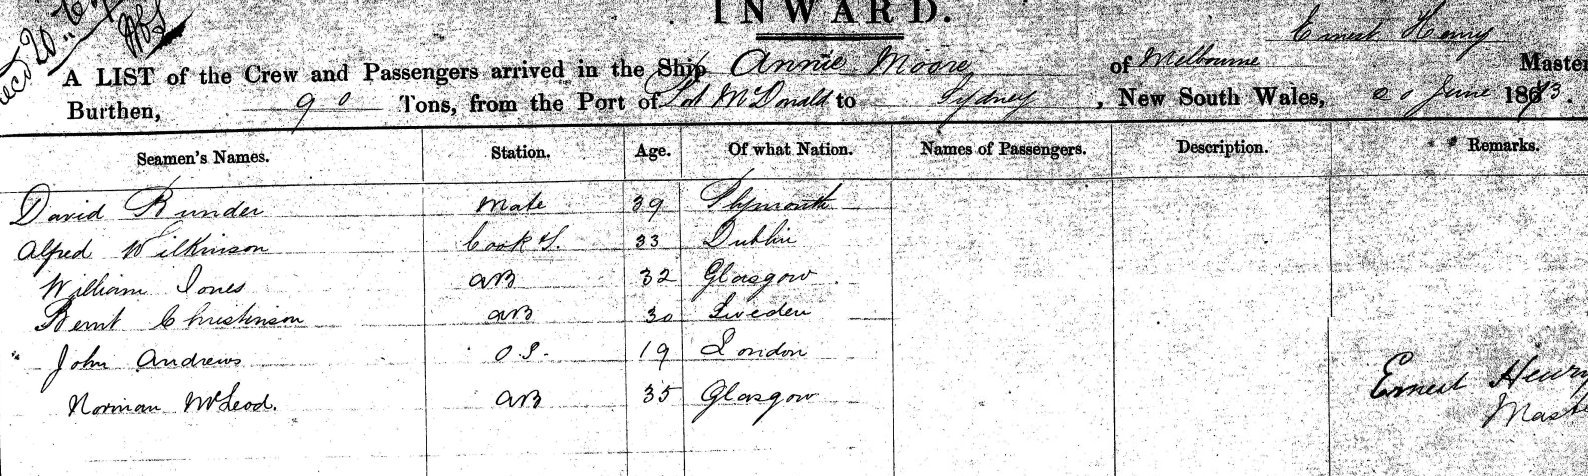 INWARD.
Ernest Henry
A LIST of the Crew and Passengers arrived in the Ship Annie Moore of Melbourne Master
Burthen, 90 Tons, from the Port of Port McDonald to Sydney, New South Wales, 20 June 1873.
Seamen's Names. Station. Age. Of what Nation. Names of Passengers. Description. Remarks.
David Runder Mate 39 Plymouth
Alfred Wilkinson Cook S. 33 Dublin
William Jones AB 32 Glasgow
Bernt Christinson AB 30 Sweden
John Andrews O.S. 19 London
Norman McLeod. AB 35 Glasgow
Ernest Henry
Master